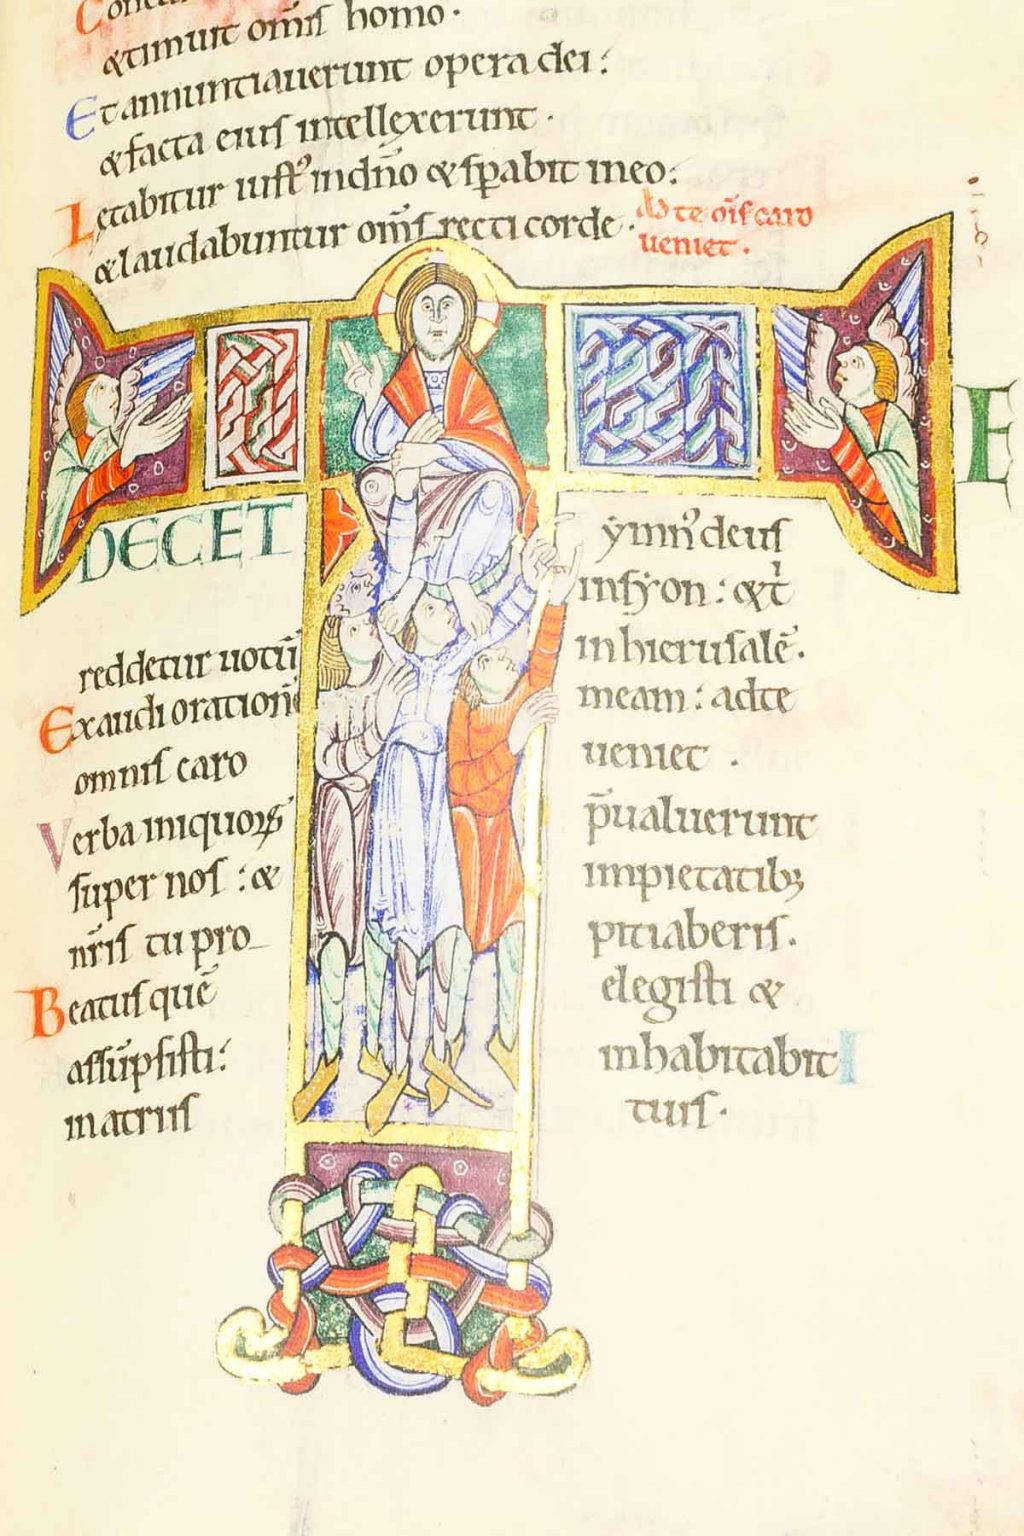 & timuit om̄s homo·
Et annuntiauerunt opera dei:
& facta eius intellexerunt·
Lętabitur iust᾽ in dn̄o & sp̄abit in eo:
& laudabuntur om̄s recti corde· Ad te oīs caro
ueniet·
T E
DECET ẏmn᾽ deus
in sẏon: & t᷒
reddetur uotū in hierusalē.
Exaudi orationē meam: ad te
omnis caro ueniet.
Verba iniquoꝝ p̄ualuerunt
super nos: & impietatibꝫ
nr̄is tu pro_ pitiaberis.
Beatus quē elegisti &
assūpsisti: inhabitabit I
in atriis tuis·